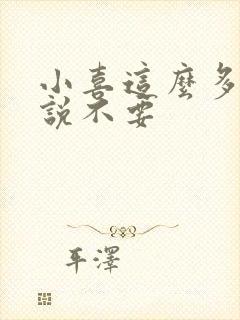 小喜這麼多
說不要
平澤